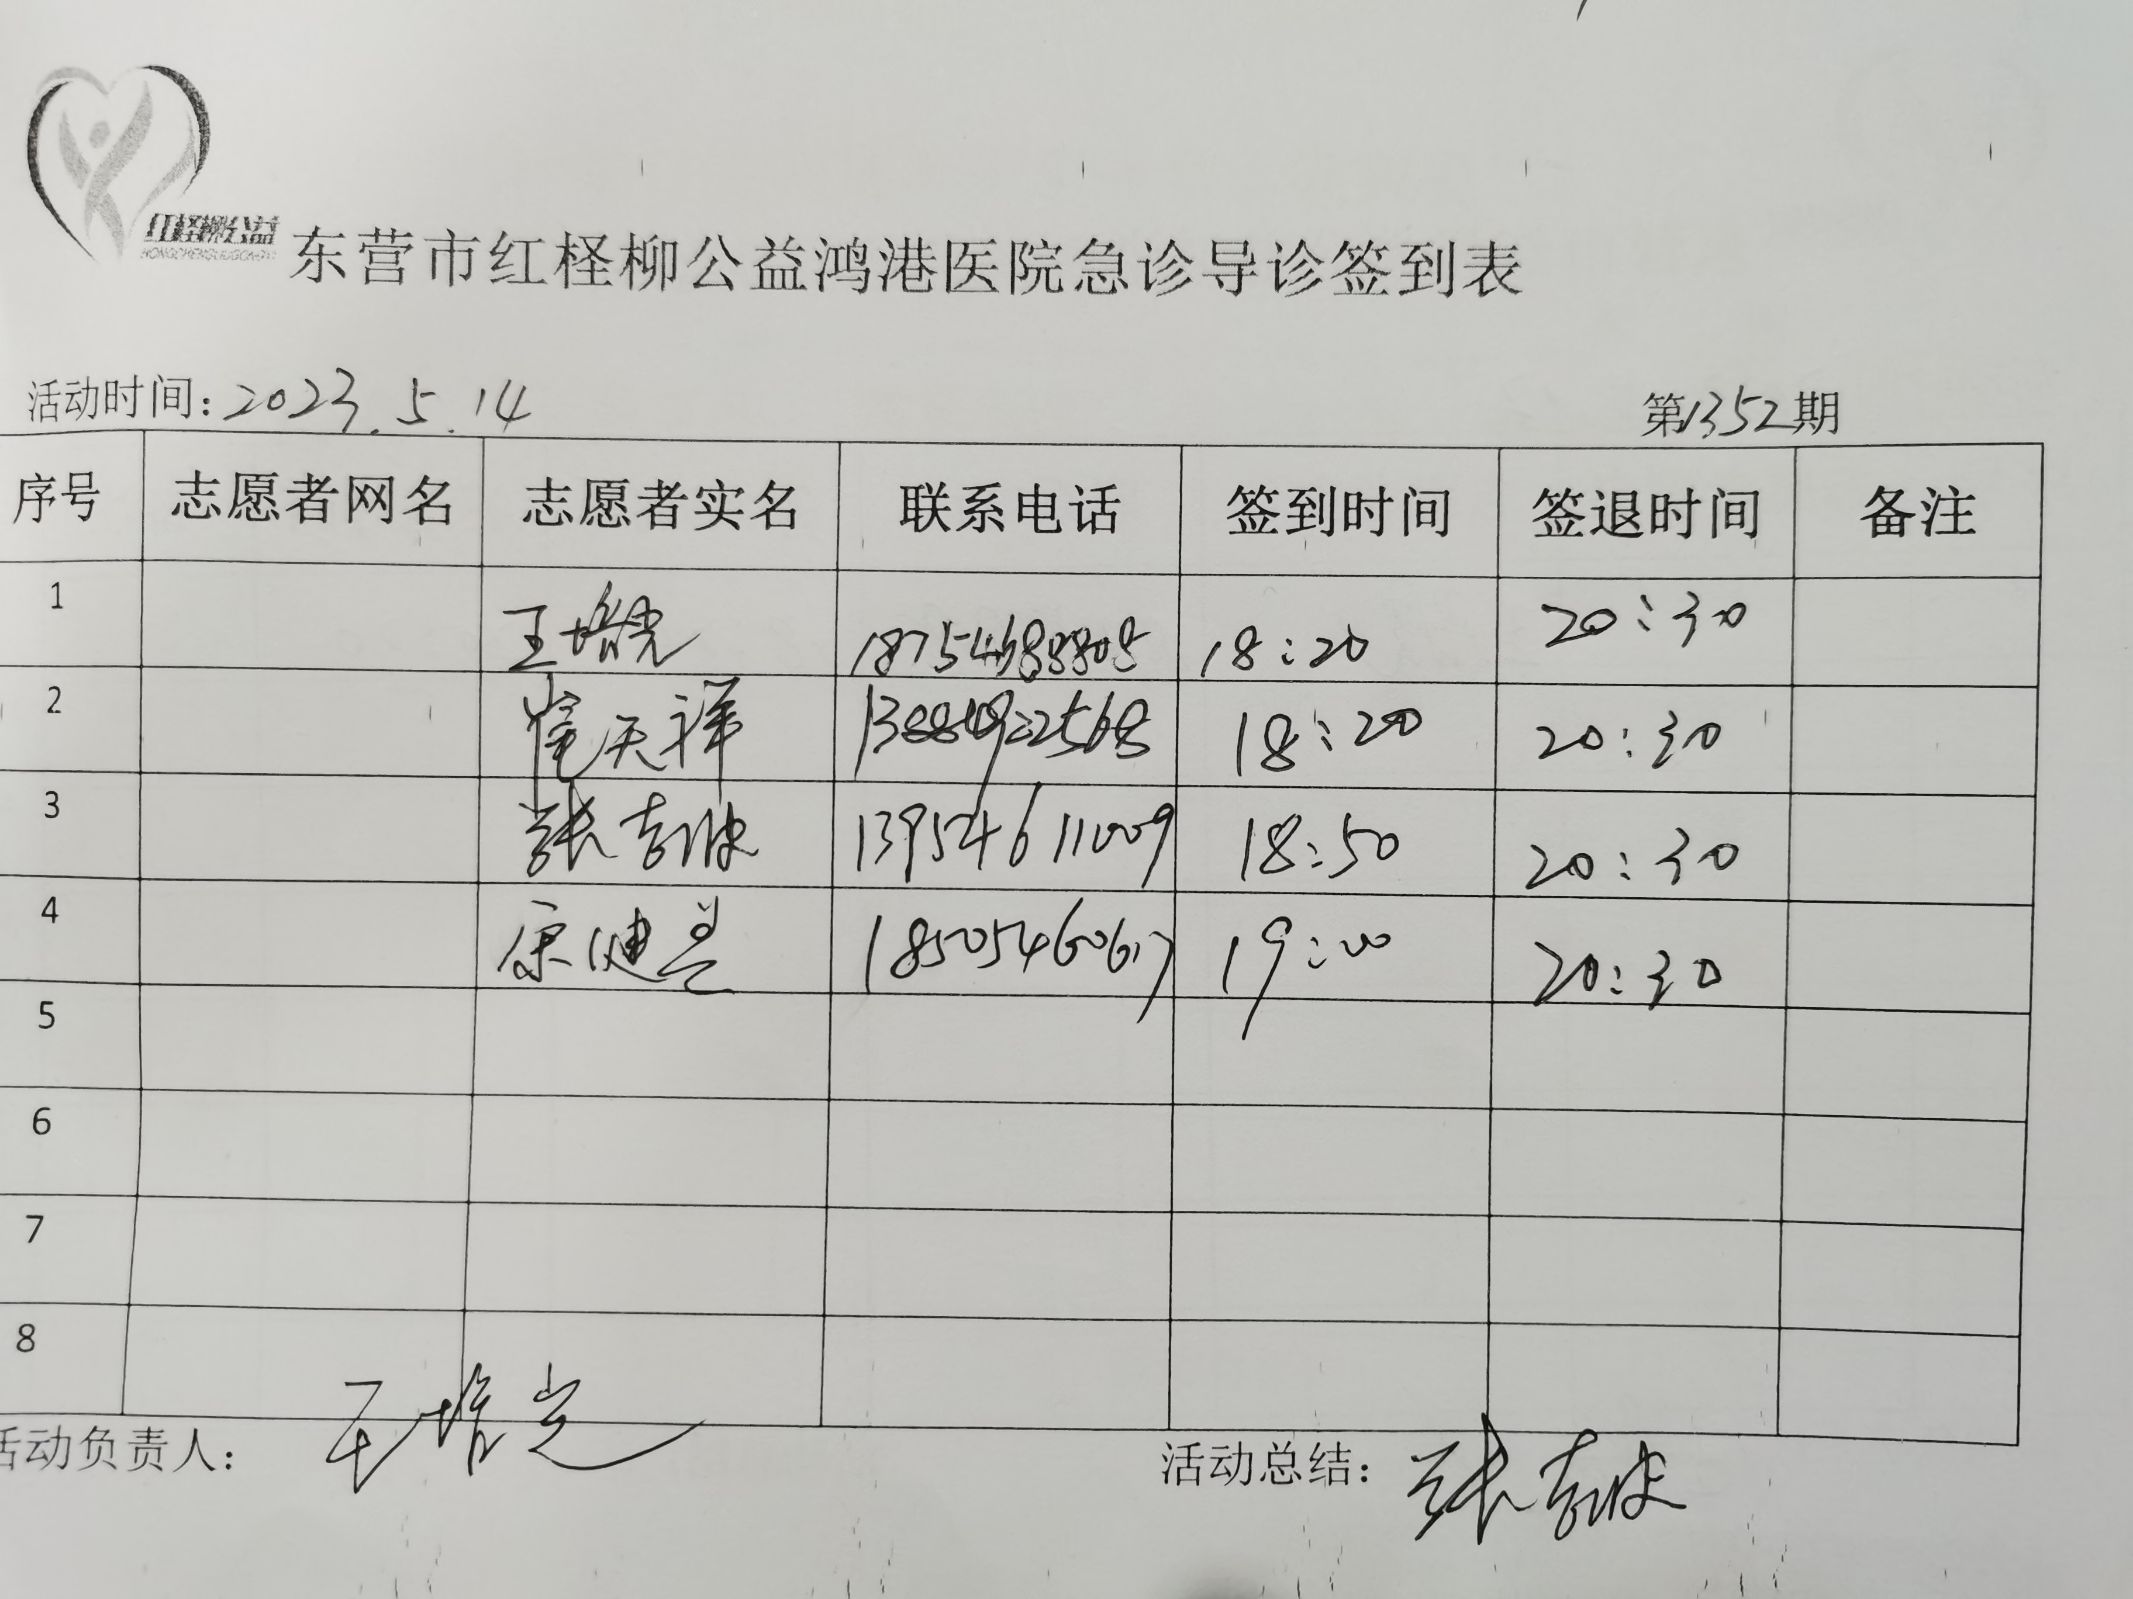 红柽柳公益
东营市红柽柳公益鸿港医院急诊导诊签到表
活动时间：2023.5.14 第1352期
序号 志愿者网名 志愿者实名 联系电话 签到时间 签退时间 备注
1 王培光 18754688808 18:20 20:30
2 崔天祥 18:20 20:30
3 张吉波 13954611009 18:50 20:30
4 康健兰 18505460617 19:00 20:30
5
6
7
8
活动负责人： 王培光 活动总结： 张吉波